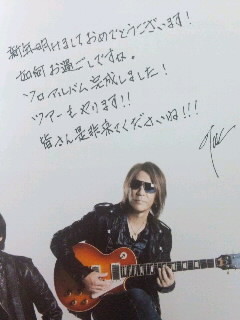 新年明けましておめでとうございます!
如何お過ごしですね。
ソロアルバム完成しました!
ツアーもやります!!
皆さん是非来てくださいね!!!